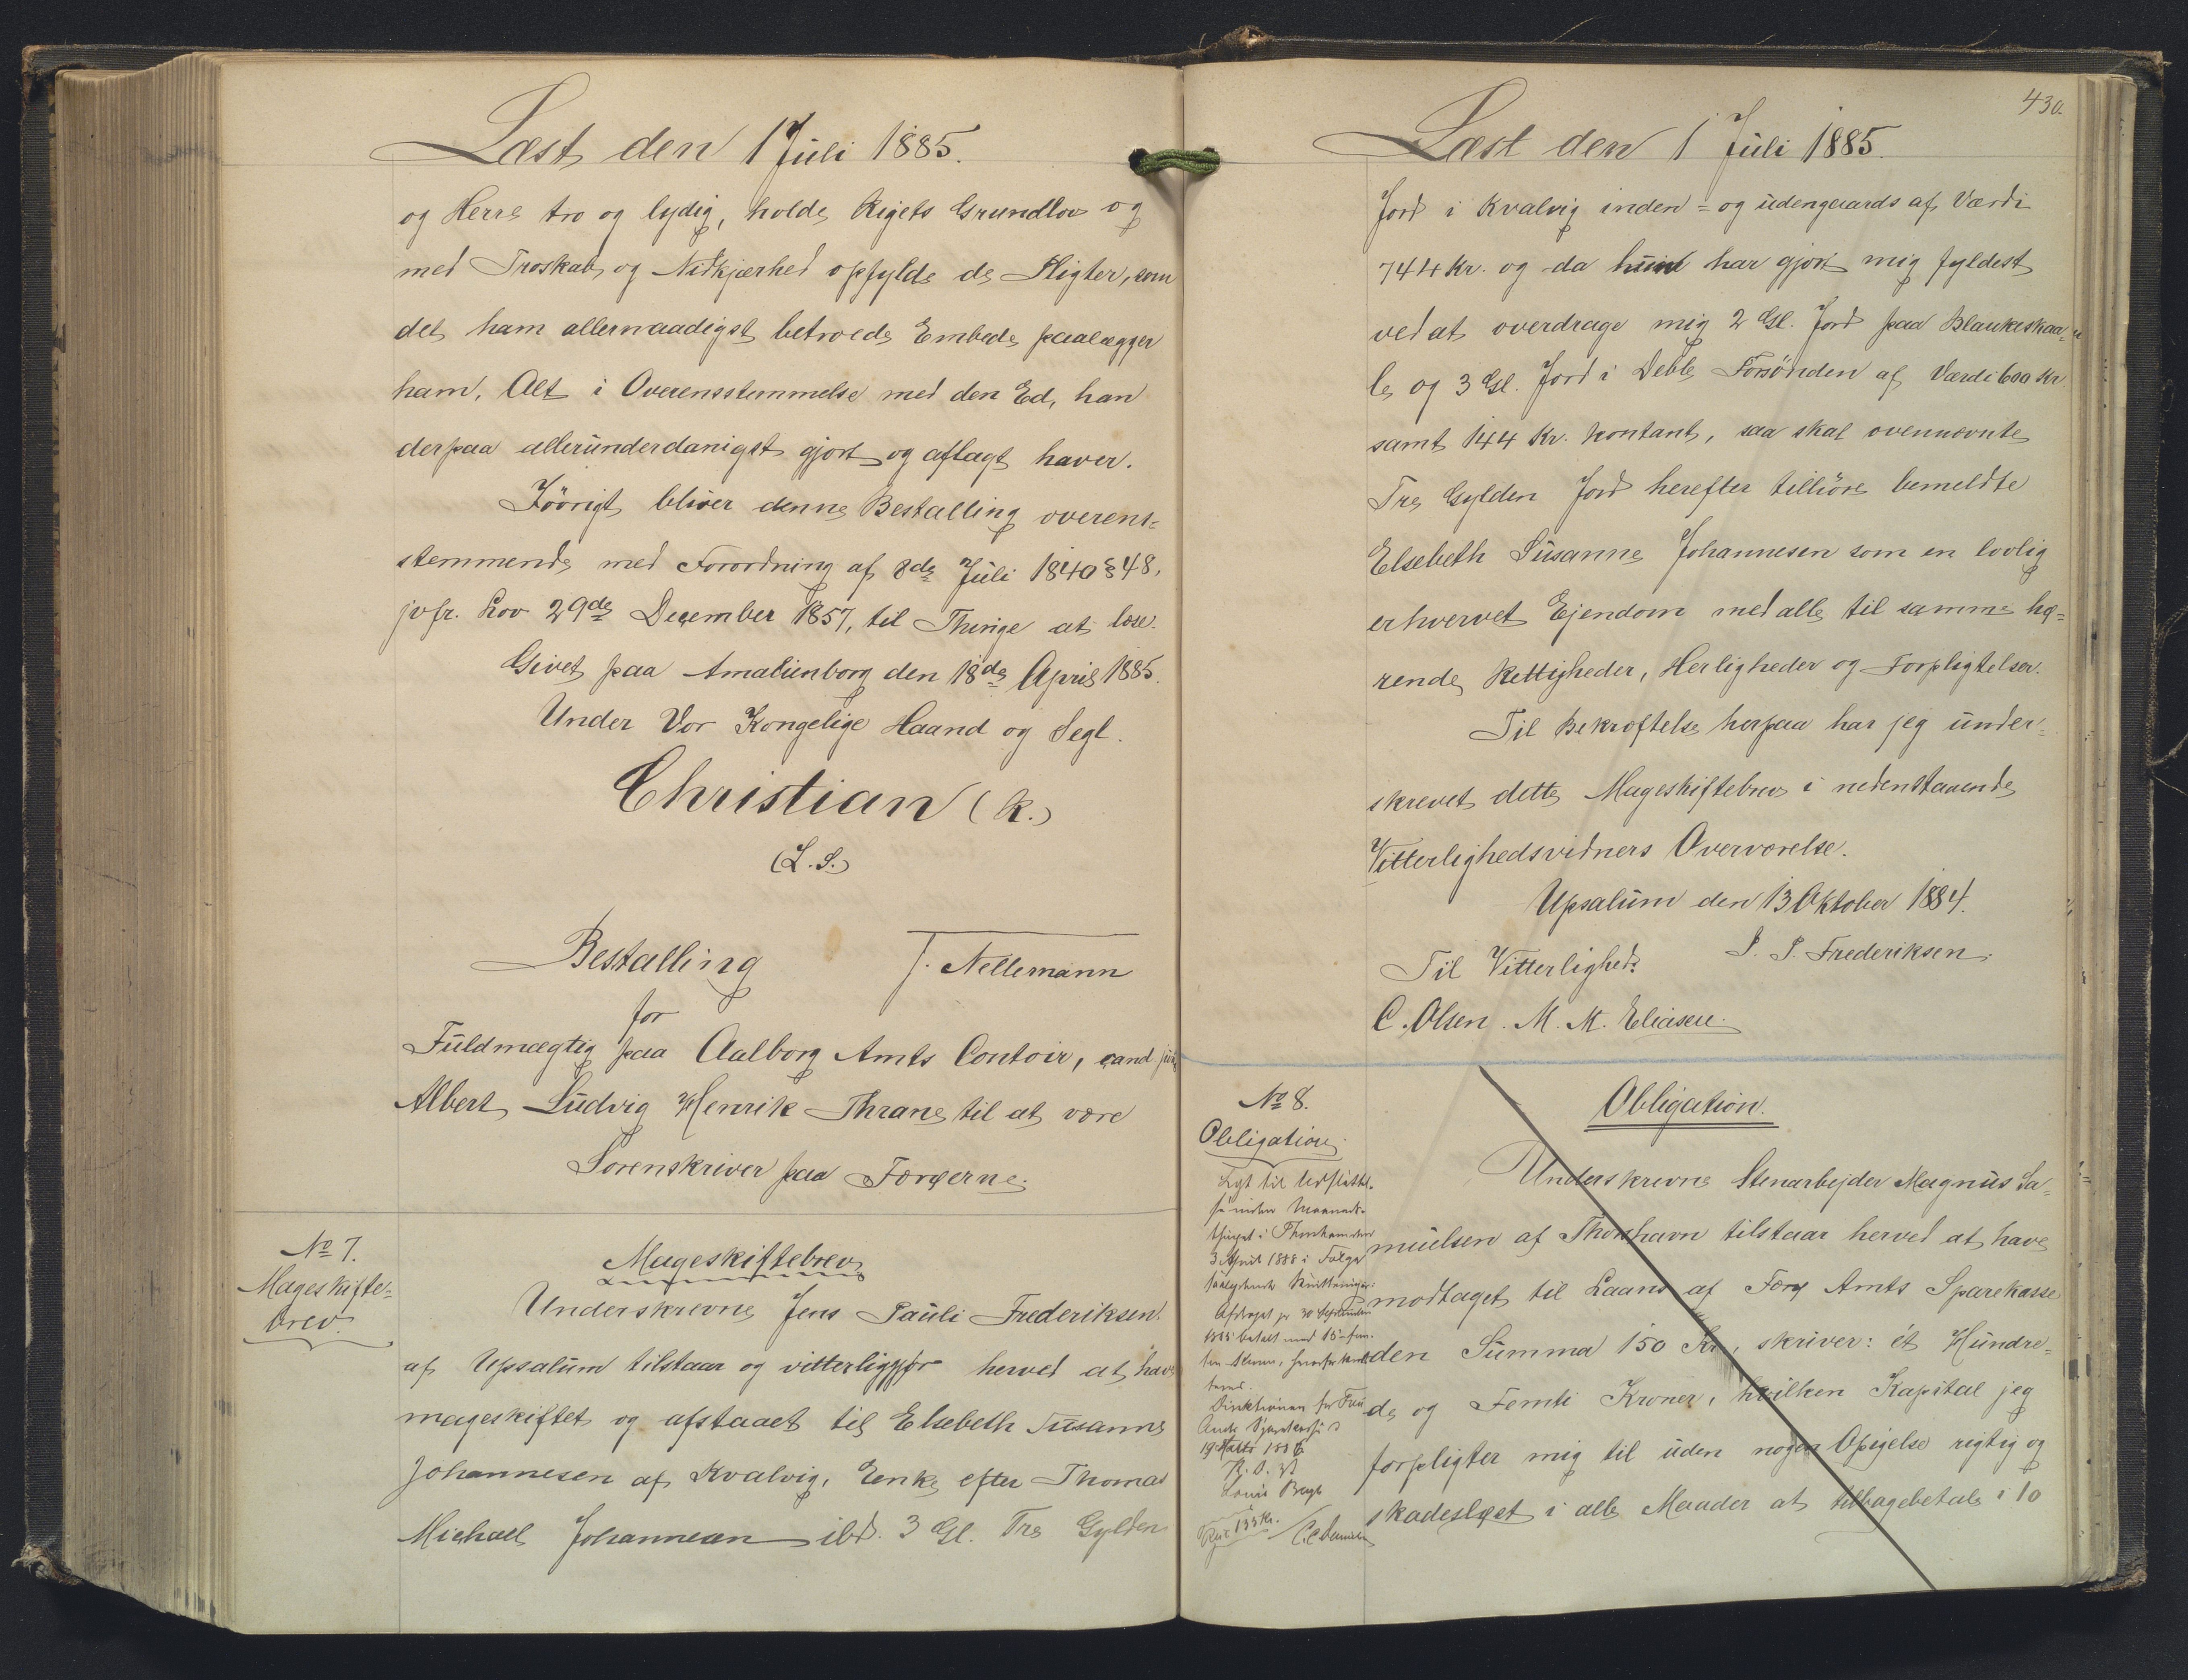 Læst den 1 Juli 1885.
og Herre tro og lydig, holde Rigets Grundlov og
med Troskab og Nidkjærhed opfylde de Pligter, som
det ham allernaadigst betroede Embede paalægger
ham, Alt i Overensstemmelse med den Ed, han
derpaa allerunderdanigst gjort og aflagt haver.
Iövrigt bliver denne Bestalling overens=
stemmende med Forordning af 8de Juli 1840 § 48,
jvfr. Lov 29de December 1857, til Thinge at læse.
Givet paa Amalienborg den 18de April 1885.
Under Vor Kongelige Haand og Segl.
Christian (R.)
(L. S.)
J. Nellemann
Bestalling
for
Fuldmægtig paa Aalborg Amts Contoir, cand jur
Albert Ludvig Henrik Thrane til at være
Sorenskriver paa Færøerne.
No 7.
Mageskifte=
brev.
Mageskiftebrev
Underskrevne Jens Pauli Frederiksen
af Upsalum tilstaar og vitterliggjør herved at have
mageskiftet og afstaaet til Elsebeth Susanne
Johannesen af Kvalvig, Enke efter Thomas
Michael Johannesen ibd. 3 Gl. Tre Gylden
430.
Læst den 1 Juli 1885.
Jord i Kvalvig inden= og udengaards af Værdi
744 Kr. og da hun har gjort mig fyldest
ved at overdrage mig 2 Gl. Jord paa Blankeskaa=
le og 3 Gl. Jord i Deble Forsönden af Værdi 600 Kr.
samt 144 Kr. kontant, saa skal ovennævnte
Tre Gylden Jord herefter tilhöre bemeldte
Elsebeth Susanne Johannesen som en lovlig
erhvervet Ejendom med alle til samme hø=
rende Rettigheder, Herligheder og Forpligtelser.
Til Bekræftelse herpaa har jeg under=
skrevet dette Mageskiftebrev i nedenstaaende
Vitterlighedsvidners Overværelse.
Upsalum den 13 Oktober 1884.
J. P. Frederiksen.
Til Vitterlighed:
C. Olsen. M. M. Eliasen.
No 8.
Obligation.
Lyst til Udslettel-
se inden Maaneds-
thinget i Thorshavn den
3 April 1886 i Følge
saalydende Kvittering:
Afdraget pr 30 September
1885 betalt med 15 fem-
ten Kroner, hvorfor kvit-
teres.
Direktionen for Færø
Amts Sparekasse d
19 Marts 1886
Louis Bergh
Rest 135 Kr.
Obligation.
Underskrevne Stenarbejder Magnus Sa=
muelsen af Thorshavn tilstaar herved at have
modtaget til Laans af Færø Amts Sparekasse
den Summa 150 Kr, skriver: ét Hundre=
de og Femti Kroner, hvilken Kapital jeg
forpligter mig til uden nogen Opsigelse rigtig og
skadesløst i alle Maader at tilbagebetale i 10